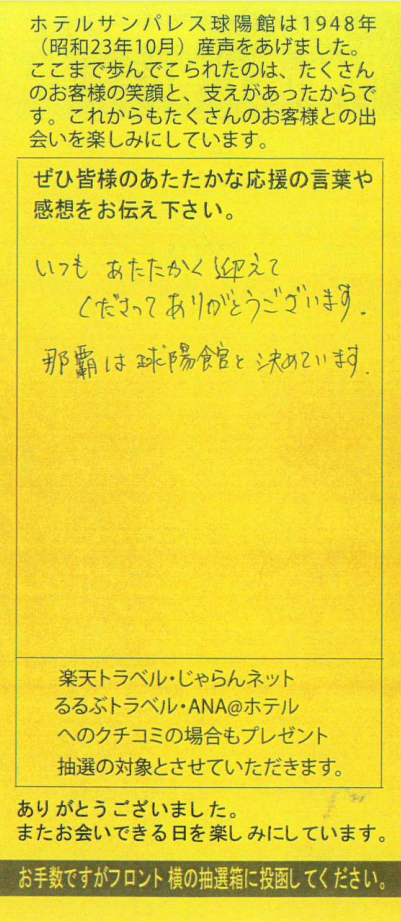 ホテルサンパレス球陽館は1948年
（昭和23年10月）産声をあげました。
ここまで歩んでこられたのは、たくさん
のお客様の笑顔と、支えがあったからで
す。これからもたくさんのお客様との出
会いを楽しみにしています。
ぜひ皆様のあたたかな応援の言葉や
感想をお伝え下さい。
いつも あたたかく 迎えて
くださって ありがとうございます.
那覇は 球陽館と 決めています.
楽天トラベル・じゃらんネット
るるぶトラベル・ANA@ホテル
へのクチコミの場合もプレゼント
抽選の対象とさせていただきます。
ありがとうございました。
またお会いできる日を楽しみにしています。
お手数ですがフロント横の抽選箱に投函してください。